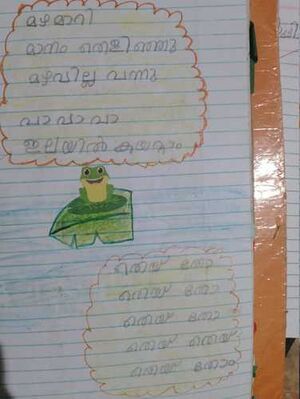 മഴമാറി
മാനം തെളിഞ്ഞു
മഴവില്ല് വന്നു
വാ വാ വാ
ഇലയിൽ കയറാം
തെയ് തോ
തെയ് തോ
തെയ് തോ
തെയ് തെയ്
തെയ് തോം